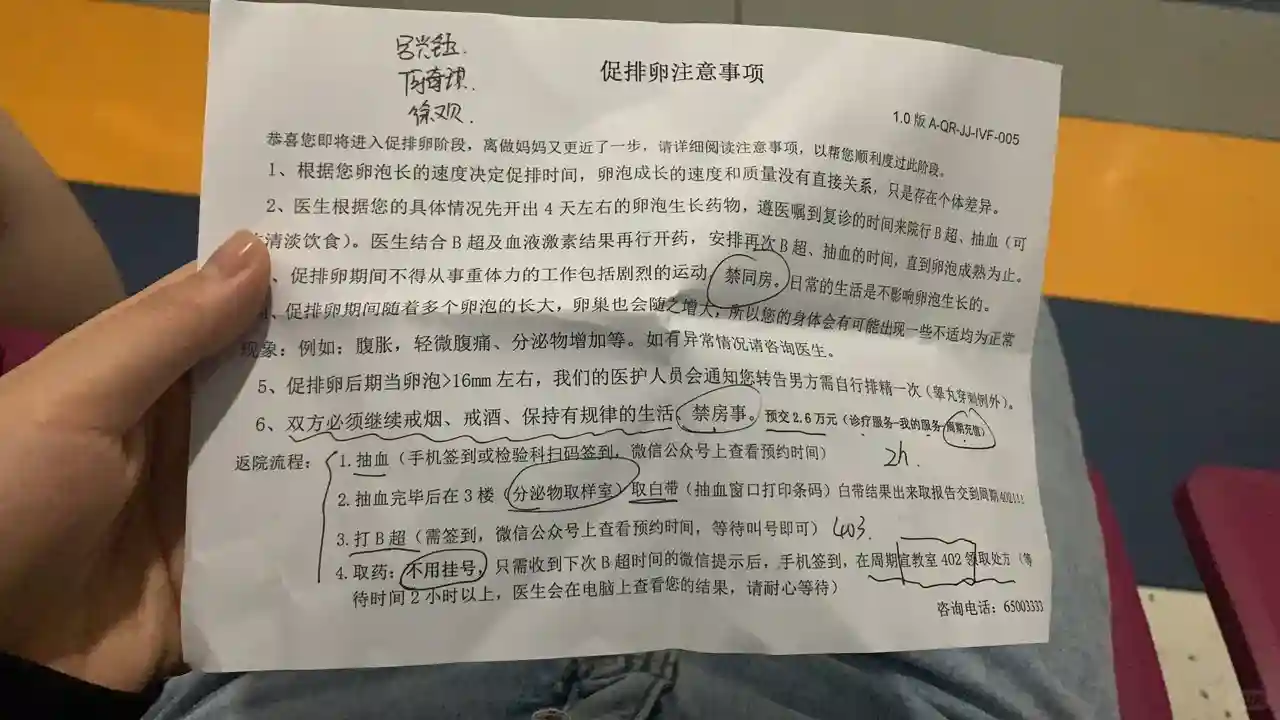 促排卵注意事项
1.0 版 A-QR-JJ-IVF-005
恭喜您即将进入促排卵阶段，离做妈妈又更近了一步，请详细阅读注意事项，以帮您顺利度过此阶段。
1、根据您卵泡长的速度决定促排时间，卵泡成长的速度和质量没有直接关系，只是存在个体差异。
2、医生根据您的具体情况先开出 4 天左右的卵泡生长药物，遵医嘱到复诊的时间来院行 B 超、抽血（可
清淡饮食）。医生结合 B 超及血液激素结果再行开药，安排再次 B 超、抽血的时间，直到卵泡成熟为止。
、促排卵期间不得从事重体力的工作包括剧烈的运动，禁同房。日常的生活是不影响卵泡生长的。
、促排卵期间随着多个卵泡的长大，卵巢也会随之增大，所以您的身体会有可能出现一些不适均为正常
现象：例如：腹胀，轻微腹痛、分泌物增加等。如有异常情况请咨询医生。
5、促排卵后期当卵泡>16mm 左右，我们的医护人员会通知您转告男方需自行排精一次（睾丸穿刺例外）。
6、双方必须继续戒烟、戒酒、保持有规律的生活，禁房事。预交 2.6 万元（诊疗服务-我的服务-周期充值）
返院流程：1.抽血（手机签到或检验科扫码签到，微信公众号上查看预约时间） 2h.
2.抽血完毕后在 3 楼（分泌物取样室）取白带（抽血窗口打印条码）白带结果出来取报告交到周期402!!!
3.打 B 超（需签到，微信公众号上查看预约时间，等待叫号即可） 403.
4.取药：不用挂号，只需收到下次 B 超时间的微信提示后，手机签到，在周期宣教室 402 领取处方（等
待时间 2 小时以上，医生会在电脑上查看您的结果，请耐心等待）
咨询电话：65003333